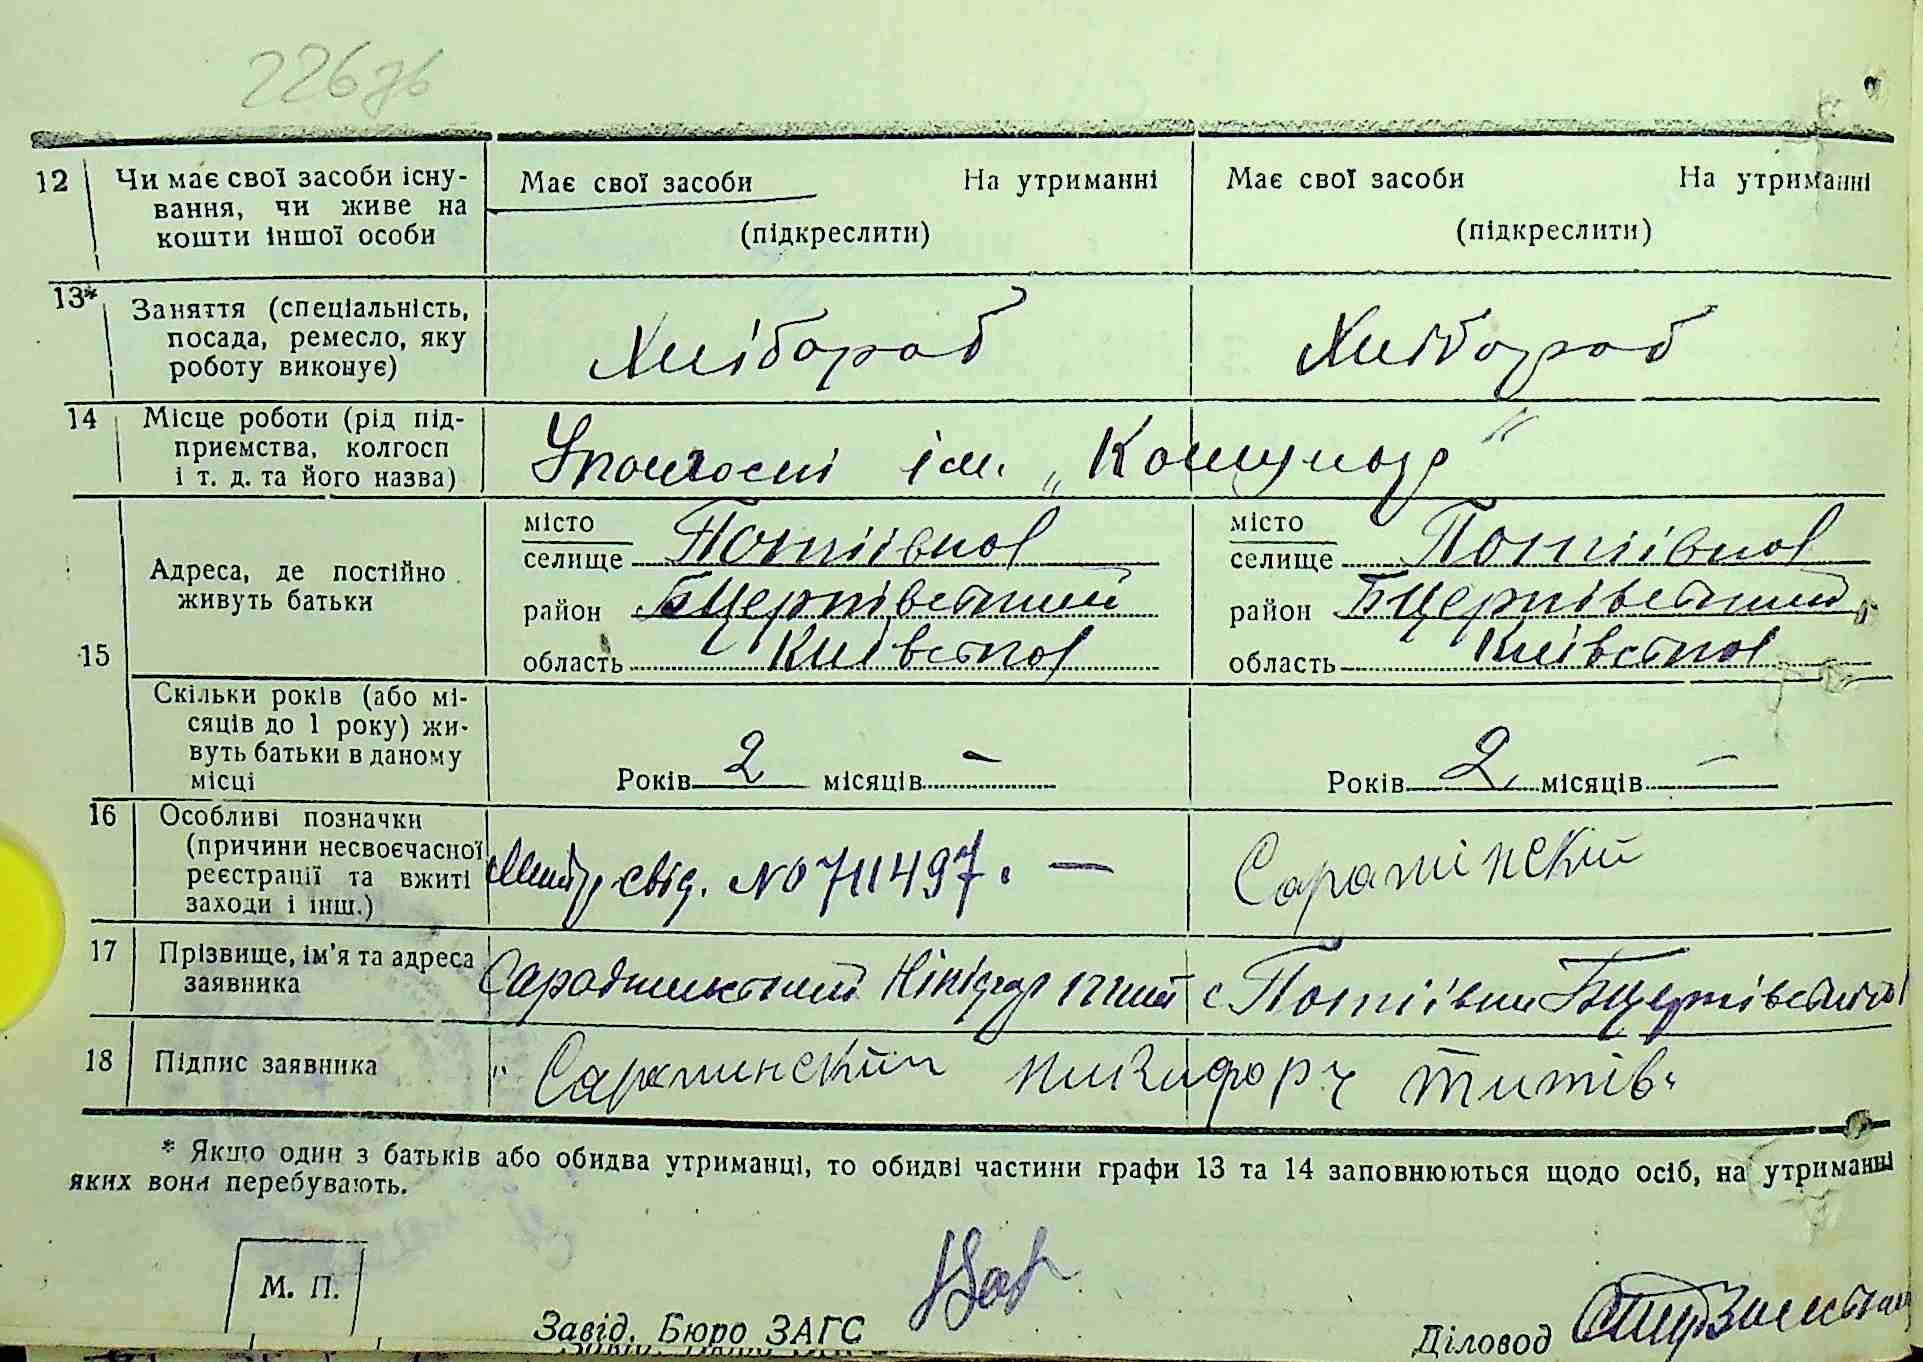 226зв
12 Чи має свої засоби існу-
вання, чи живе на
кошти іншої особи
Має свої засоби На утриманні
(підкреслити)
Має свої засоби На утриманні
(підкреслити)
13* Заняття (спеціальність,
посада, ремесло, яку
роботу виконує)
Хлібороб
Хлібороб
14 Місце роботи (рід під-
приємства, колгосп
і т. д. та його назва)
ім. „Комунар"
15
Адреса, де постійно
живуть батьки
місто
селище Потіївка
район БЦерківський
область Київська
місто
селище Потіївка
район БЦерківський
область Київська
Скільки років (або мі-
сяців до 1 року) жи-
вуть батьки в даному
місці
Років 2 місяців —
Років 2 місяців —
16 Особливі позначки
(причини несвоєчасної
реєстрації та вжиті
заходи і інш.)
свід. №0711497. —
17 Прізвище, ім'я та адреса
заявника
с Потіївки
18 Підпис заявника
* Якщо один з батьків або обидва утриманці, то обидві частини графи 13 та 14 заповнюються щодо осіб, на утриманні
яких вони перебувають.
М. П.
Завід. Бюро ЗАГС
Діловод